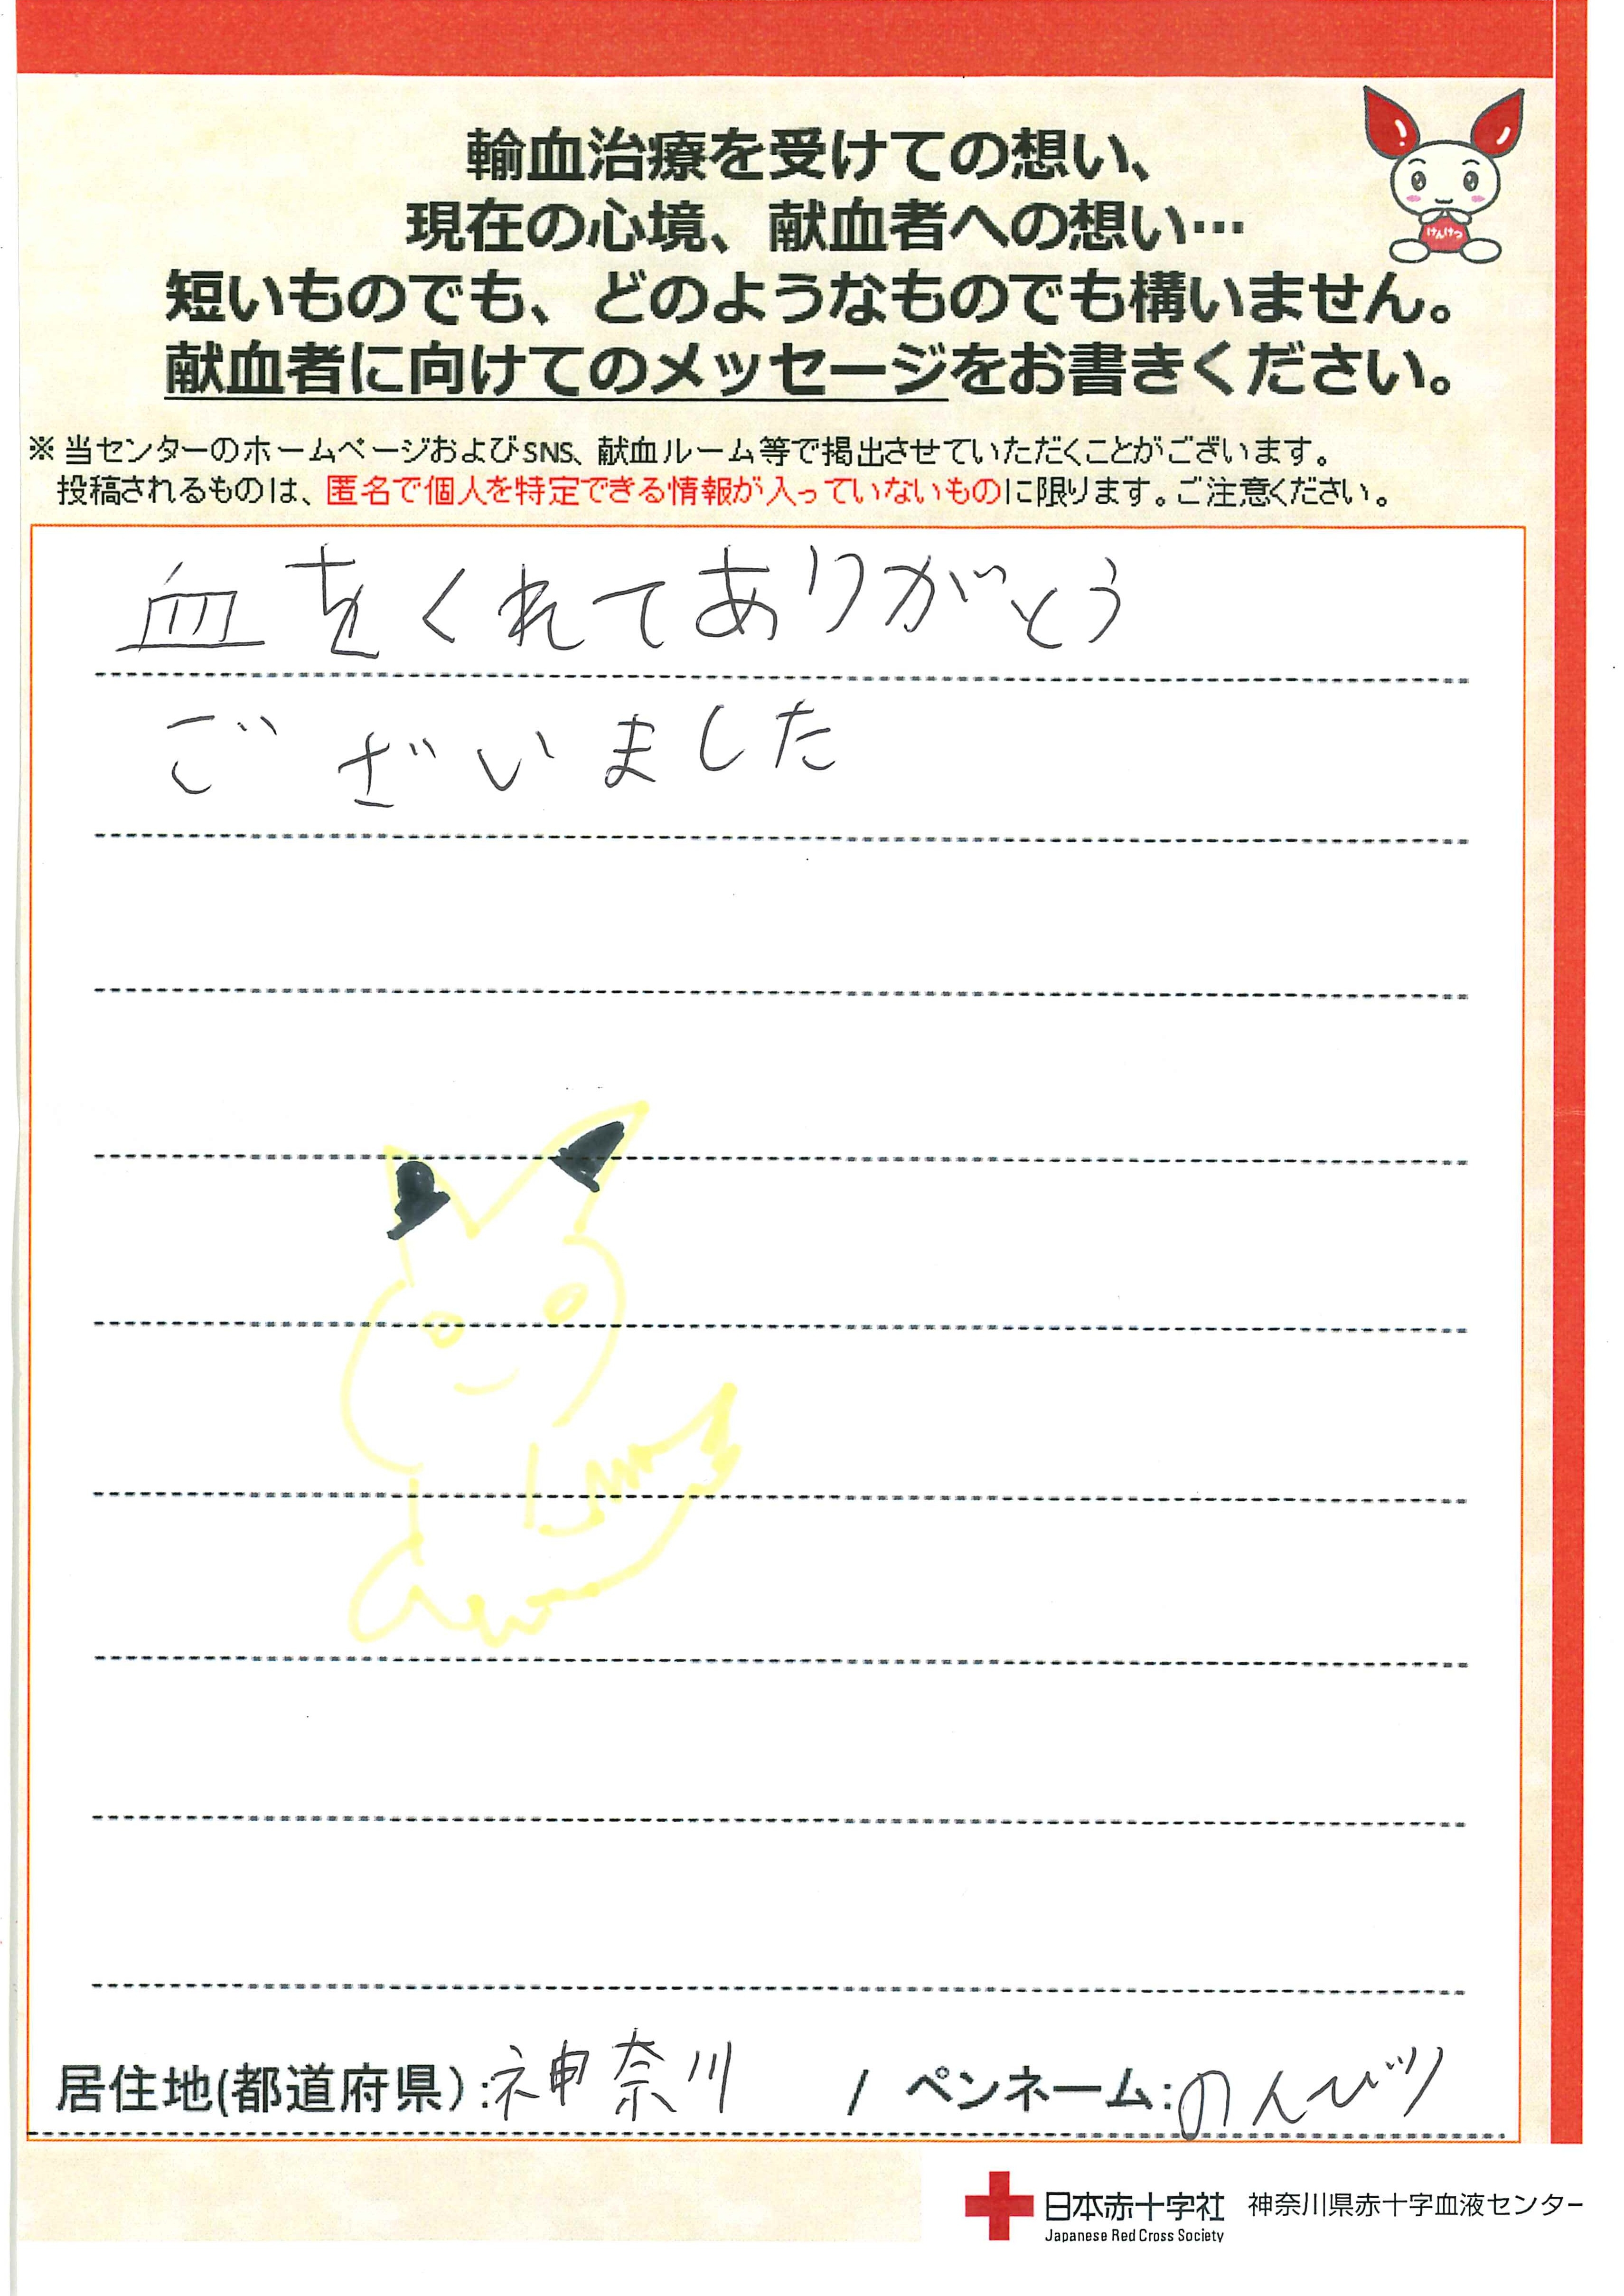 輸血治療を受けての想い、
現在の心境、献血者への想い…
短いものでも、どのようなものでも構いません。
献血者に向けてのメッセージをお書きください。
けんけつ
※当センターのホームページおよびSNS、献血ルーム等で掲出させていただくことがございます。
投稿されるものは、匿名で個人を特定できる情報が入っていないものに限ります。ご注意ください。
血をくれてありがとう
ございました
居住地(都道府県):神奈川 / ペンネーム:のんびり
日本赤十字社 神奈川県赤十字血液センター
Japanese Red Cross Society